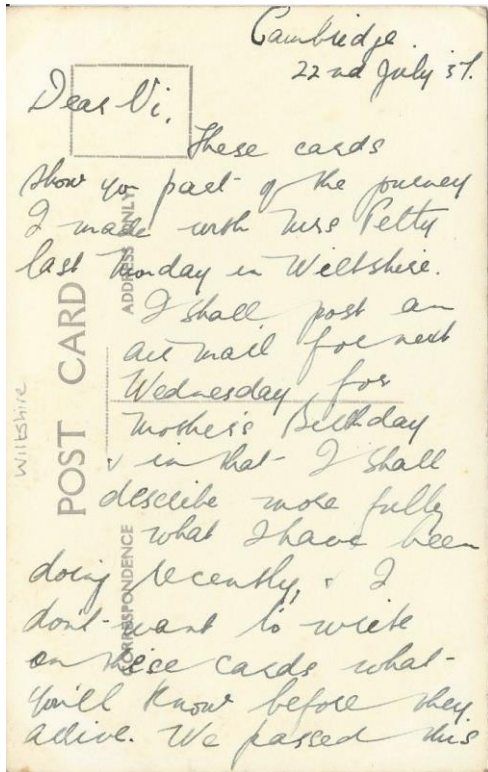 Cambridge.
22nd July '37.
Dear Vi,
These cards
show you part of the journey
I made with Mrs Petty
last Monday in Wiltshire.
I shall post an
air mail for next
Wednesday for
Mother's Birthday
& in that I shall
describe more fully
what I have been
doing recently, & I
don't want to write
on these cards what
you'll know before they
arrive. We passed this
POST CARD
ADDRESS ONLY
CORRESPONDENCE
Wiltshire